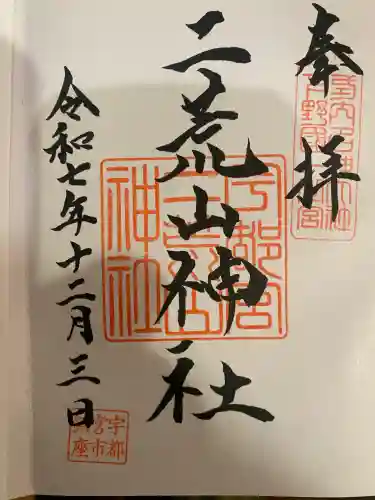 奉拝
二荒山神社
令和七年十二月三日
宇都宮
二荒山
神社